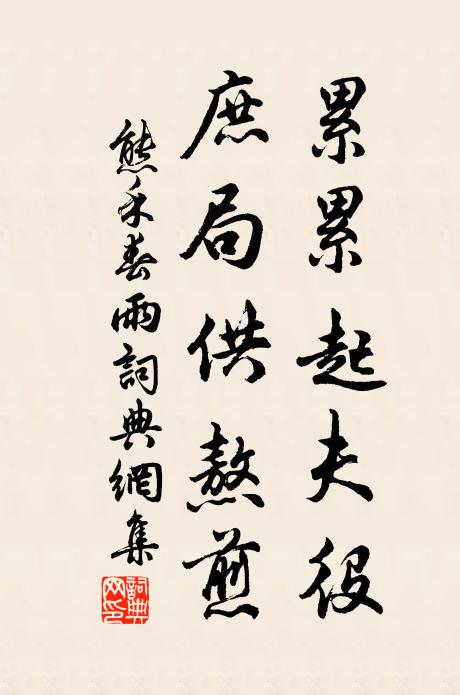 累累起夫役
庶局供熬煎
熊禾春雨詞典網集
詞典網印